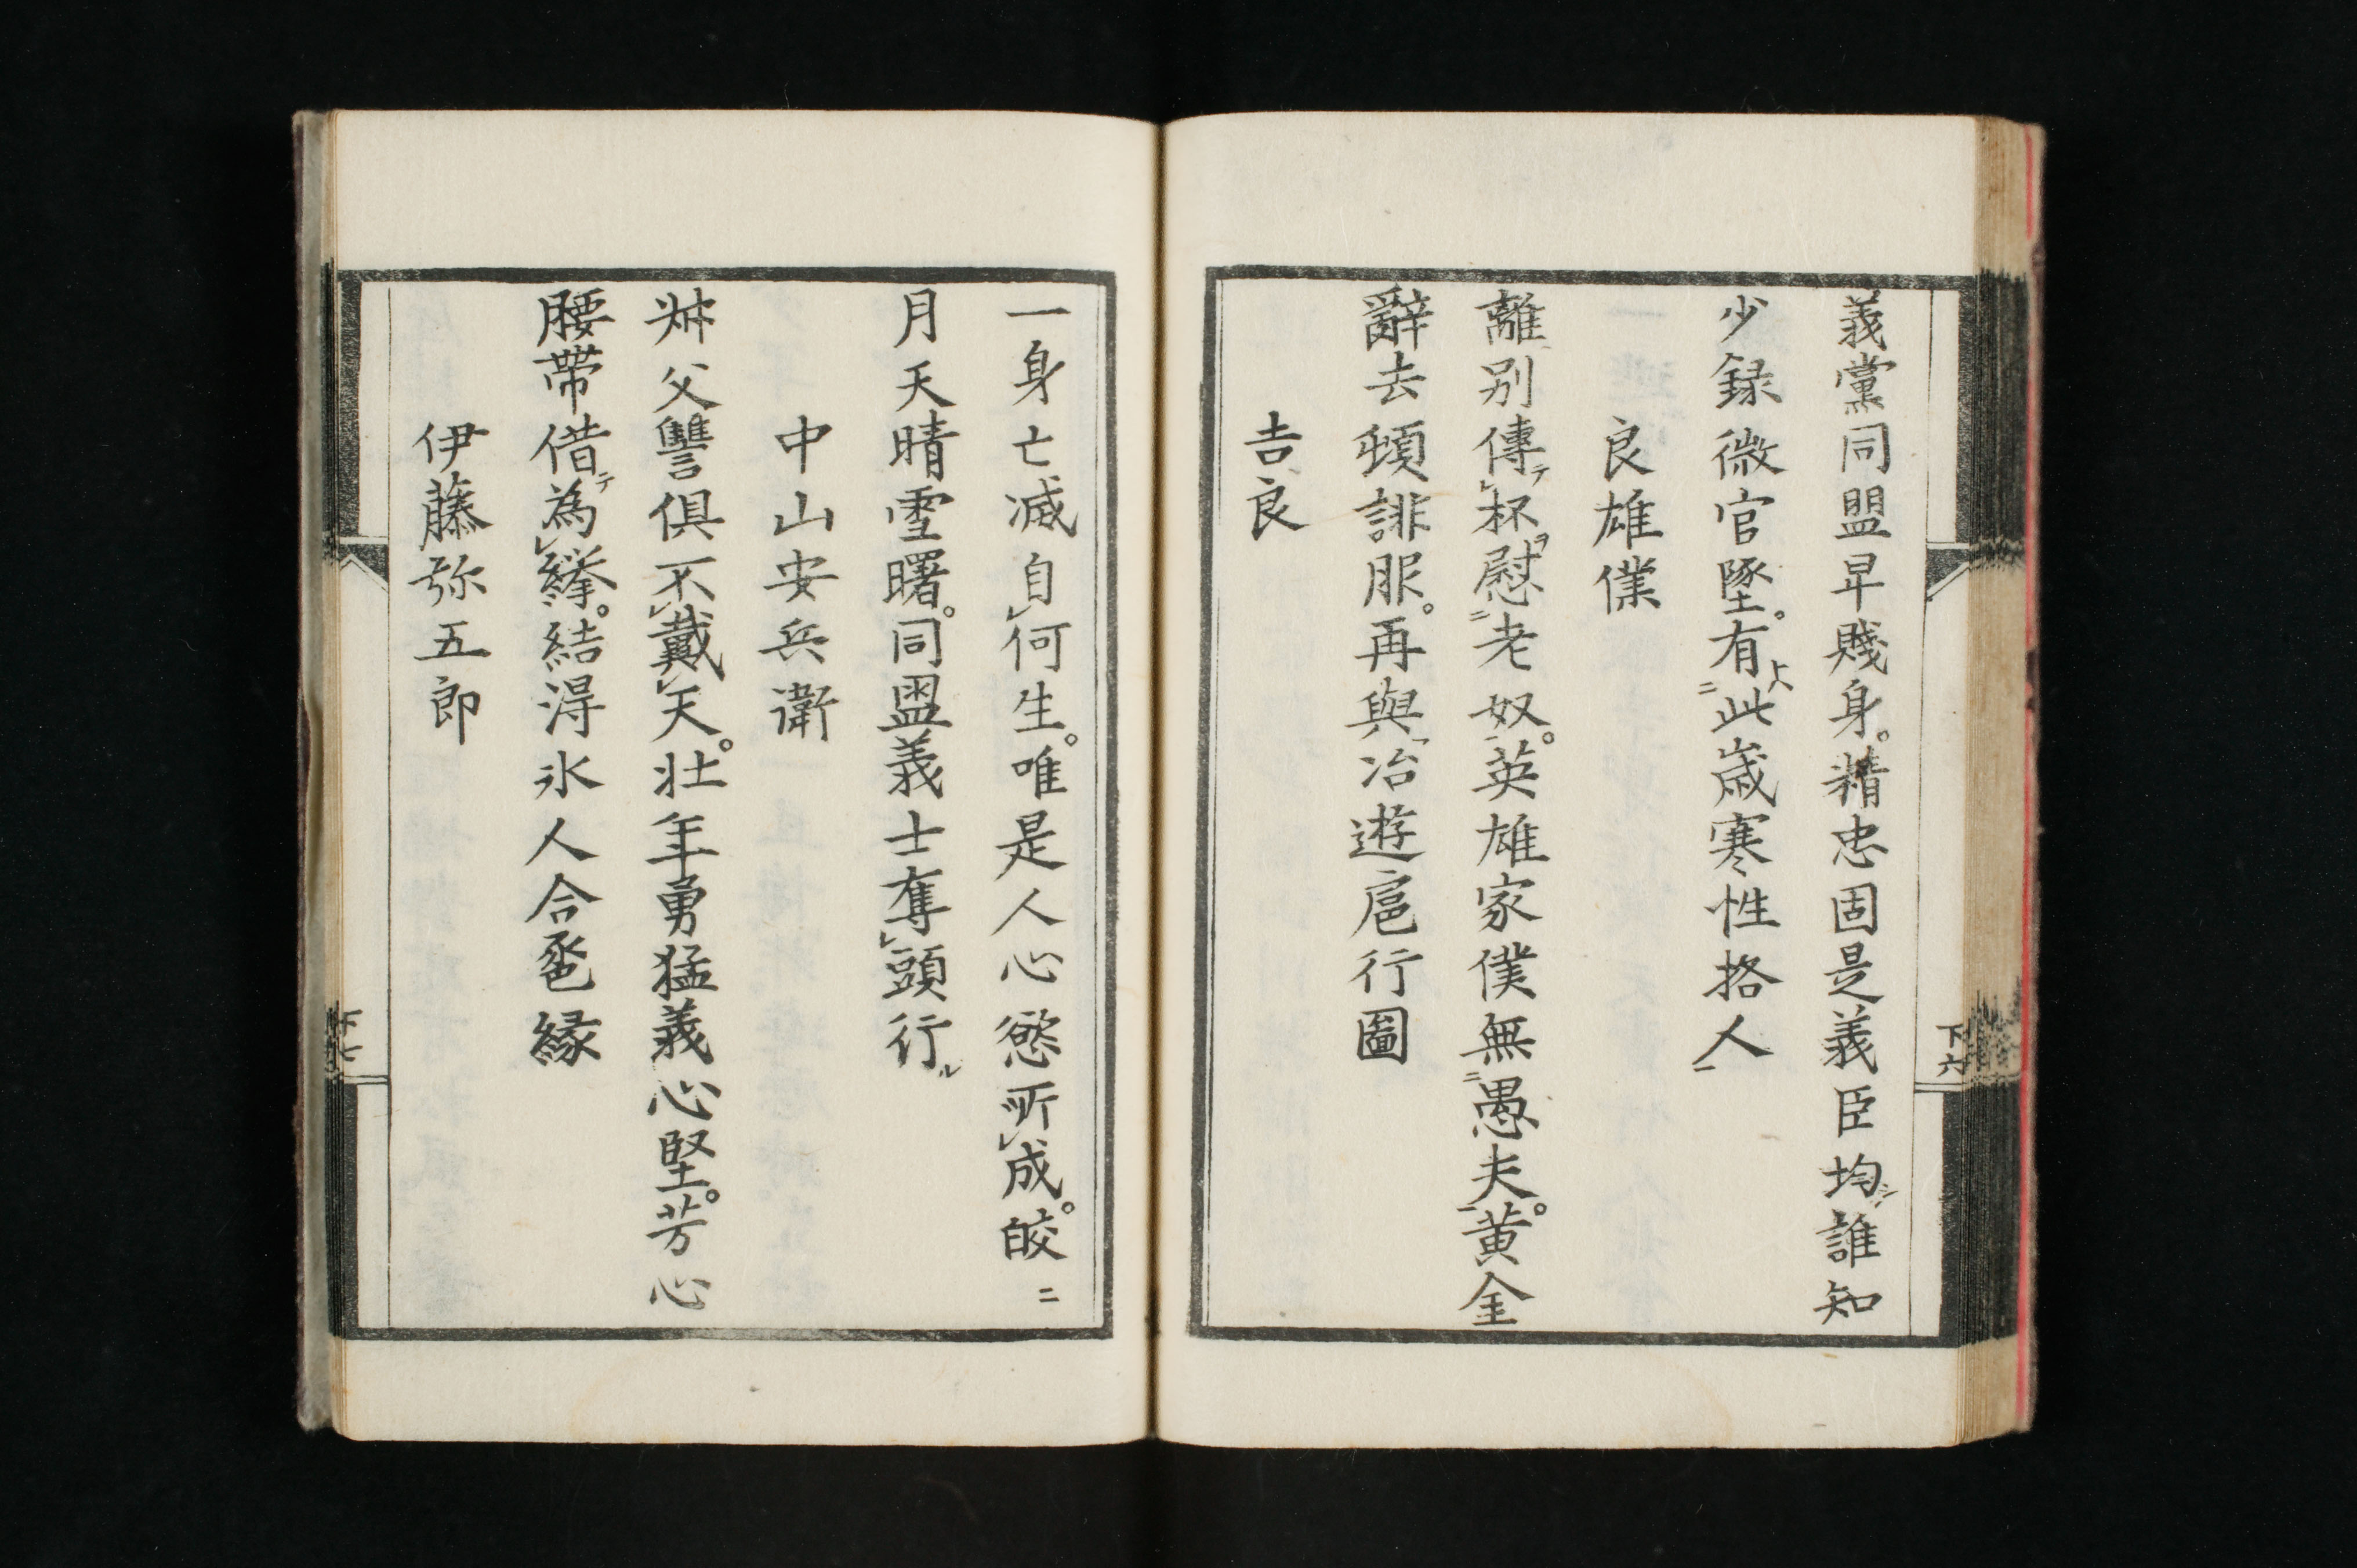 義黨同盟早賤身。精忠固是義臣均シ誰知
少録微官墜。有ㇳ此歳寒性格人
良雄僕
離別傳テ杯ヲ慰老奴。英雄家僕無愚夫。黄金
辭去頓誹服。再與冶遊扈行圖
吉良
下六
一身亡滅自何生。唯是人心慾所成。皎〻
月天晴雪曙。同盟義士奪頭行ル
中山安兵衛
舛父讐倶不戴天。壮年勇猛義心堅。芳心
腰帯借テ為襷。結得氷人合巹縁
伊藤弥五郎
下七